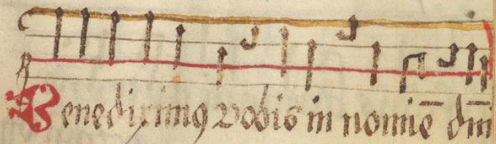 Benediximꝯ vobis in nomiē dm̄